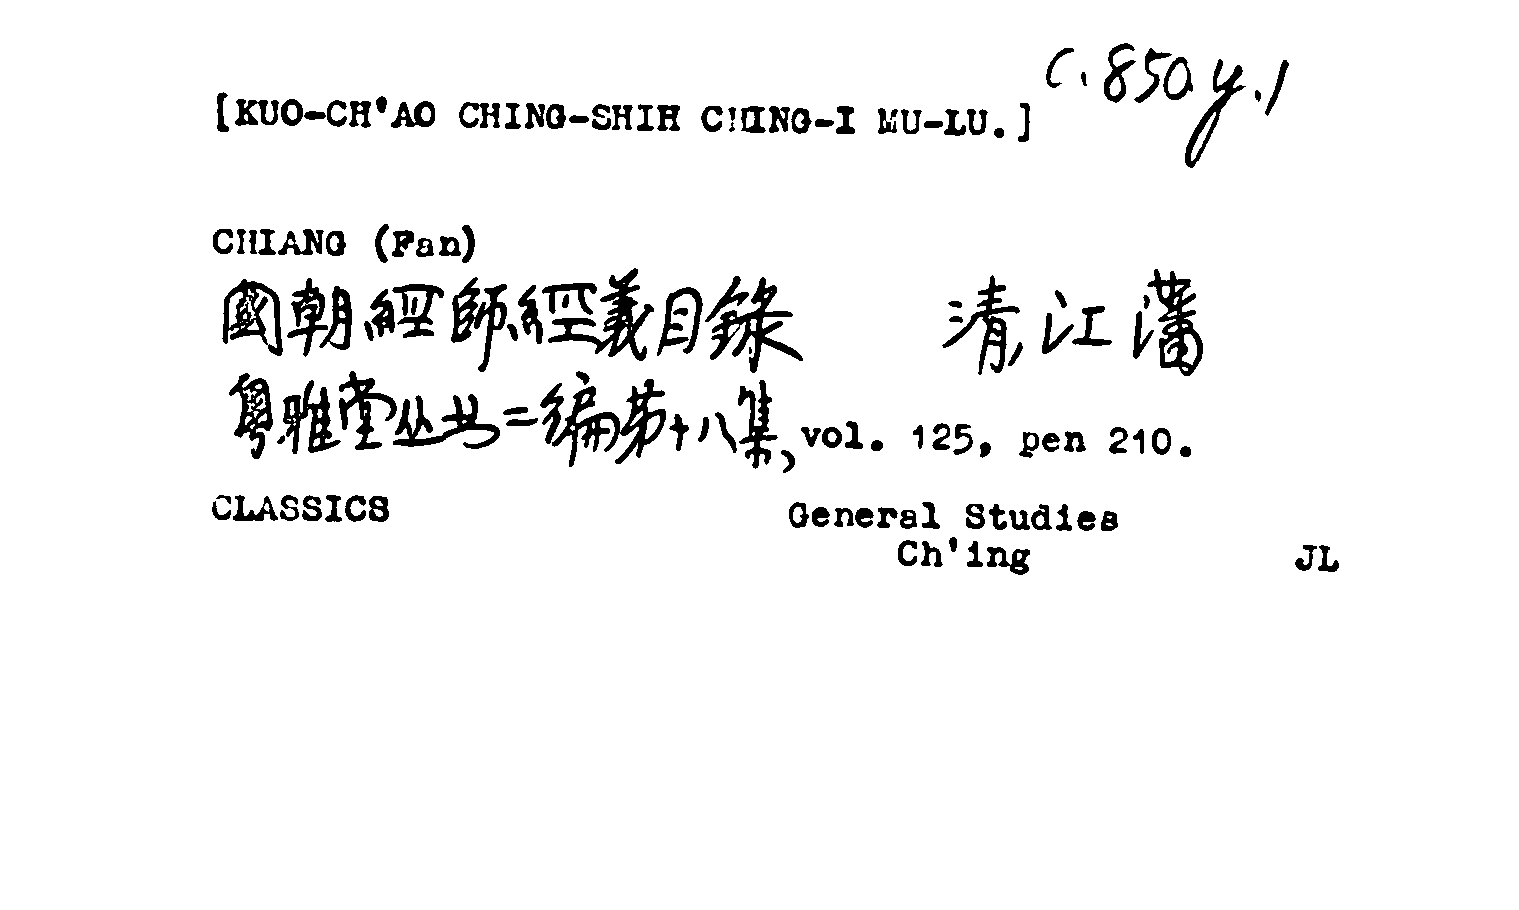 [KUO-CH'AO CHING-SHIH CHING-I MU-LU.] C.850.y.1
CHIANG (Fan)
國朝經師經義目錄 清江藩
粵雅堂丛书二编第十八集, vol. 125, pen 210.
CLASSICS General Studies
Ch'ing JL